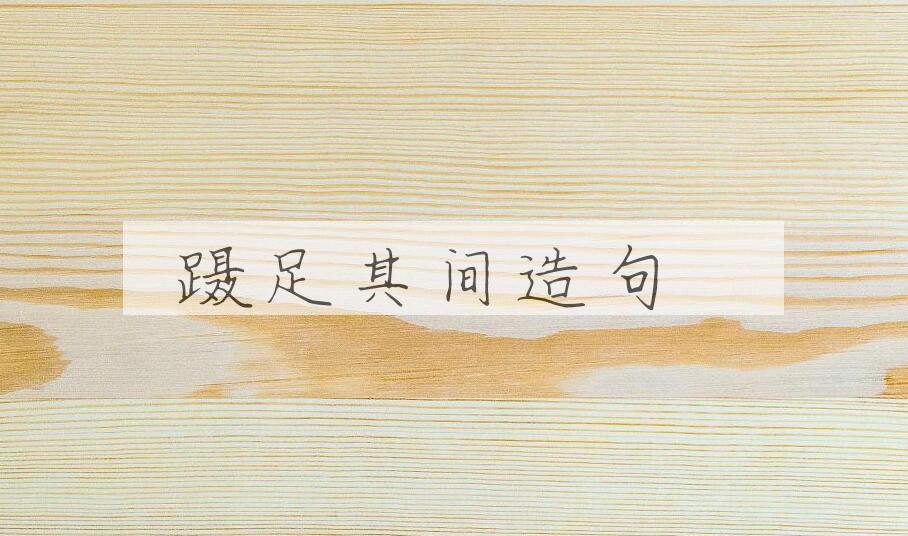 蹑足其间造句